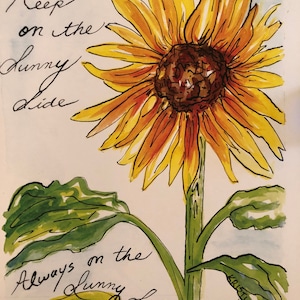 Keep
on the
Sunny
Side
Always on the
Sunny